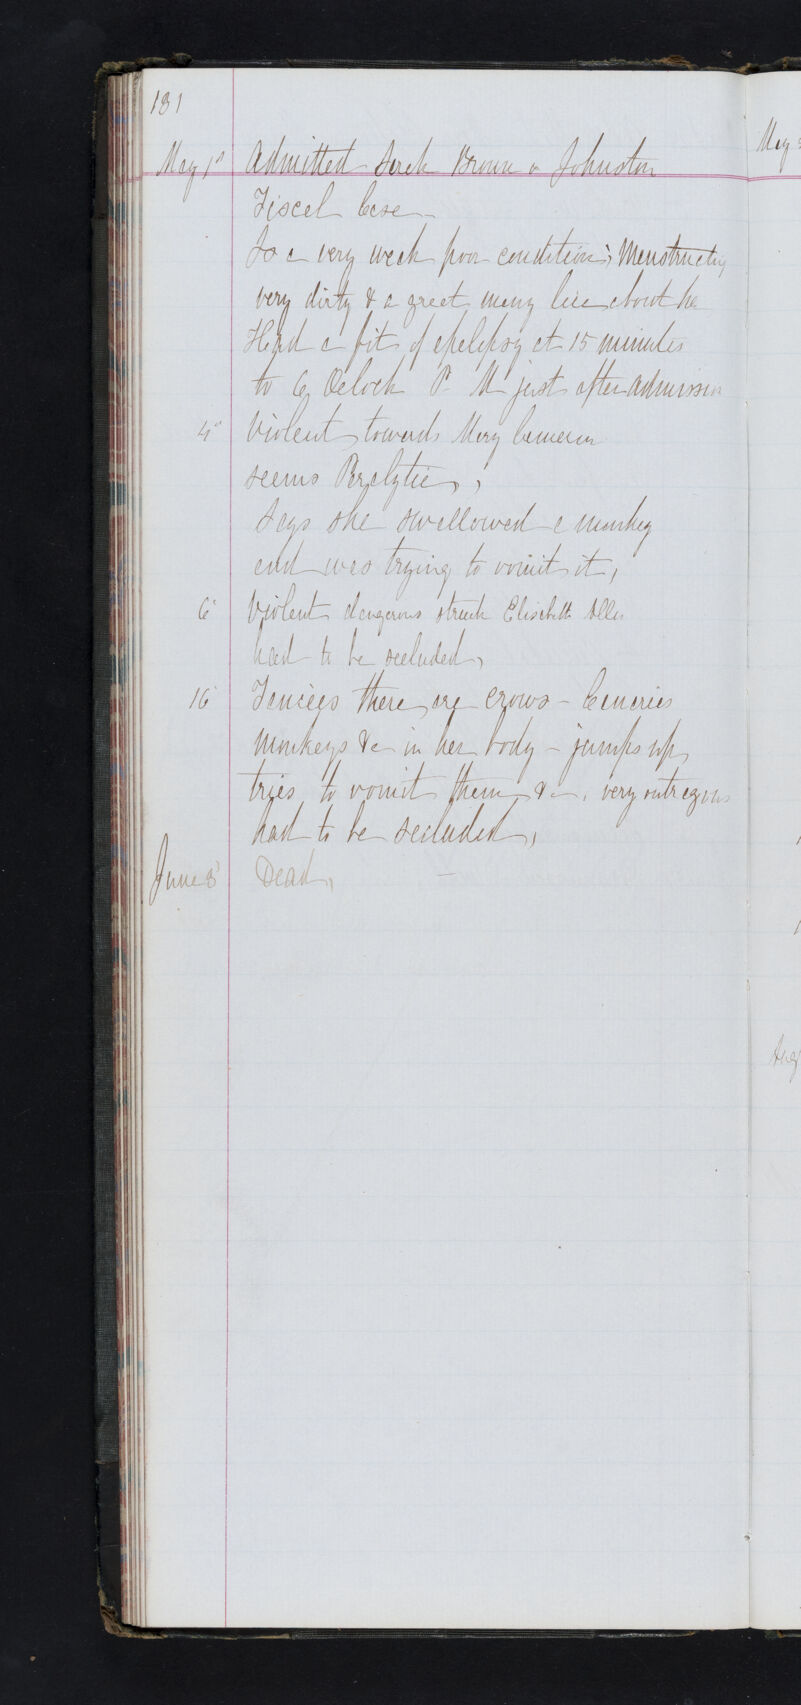 131
May 1st Admitted Sarah Brown or Johnston
Fiscal Case
Is a very weak poor condition; Menstruating
very dirty & a great many lice about her
Had a fit of epelipsy at 15 minutes
to 6 Oclock P M just after admission
4th Violent towards Mary Cameron
seems Paralytic,
Says she swallowed a monkey
and was trying to vomit it,
6th Violent dangerous struck Elisabeth Allen
had to be secluded,
16 Fancies there are crows - Canaries
monkeys &c in her body - jumps up,
tries to vomit them &c, very outragous
had to be secluded,
June 8th Dead, -
May
Aug